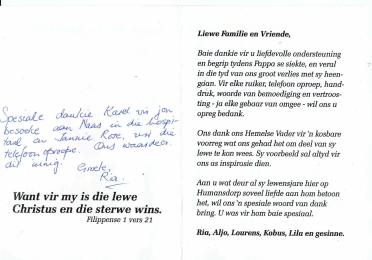 Speciale dankie Karel vir jou
besoeke aan Naas in die hospi-
taal en Sannie Rose, vir die
telefoon oproepe. Ons waardeer
dit innig.
Groete,
Ria.
Want vir my is die lewe
Christus en die sterwe wins.
Filippense 1 vers 21
Liewe Familie en Vriende,
Baie dankie vir u liefdevolle ondersteuning
en begrip tydens Pappa se siekte, en veral
in die tyd van ons groot verlies met sy heen-
gaan. Vir elke ruiker, telefoon oproep, hand-
druk, woorde van bemoediging en vertroos-
ting - ja elke gebaar van omgee - wil ons u
opreg bedank.
Ons dank ons Hemelse Vader vir 'n kosbare
voorreg wat ons gehad het om deel van sy
lewe te kon wees. Sy voorbeeld sal altyd vir
ons as inspirasie dien.
Aan u wat deur al sy lewensjare hier op
Humansdorp soveel liefde aan hom betoon
het, wil ons 'n spesiale woord van dank
bring. U was vir hom baie spesiaal.
Ria, Aljo, Lourens, Kobus, Lila en gesinne.